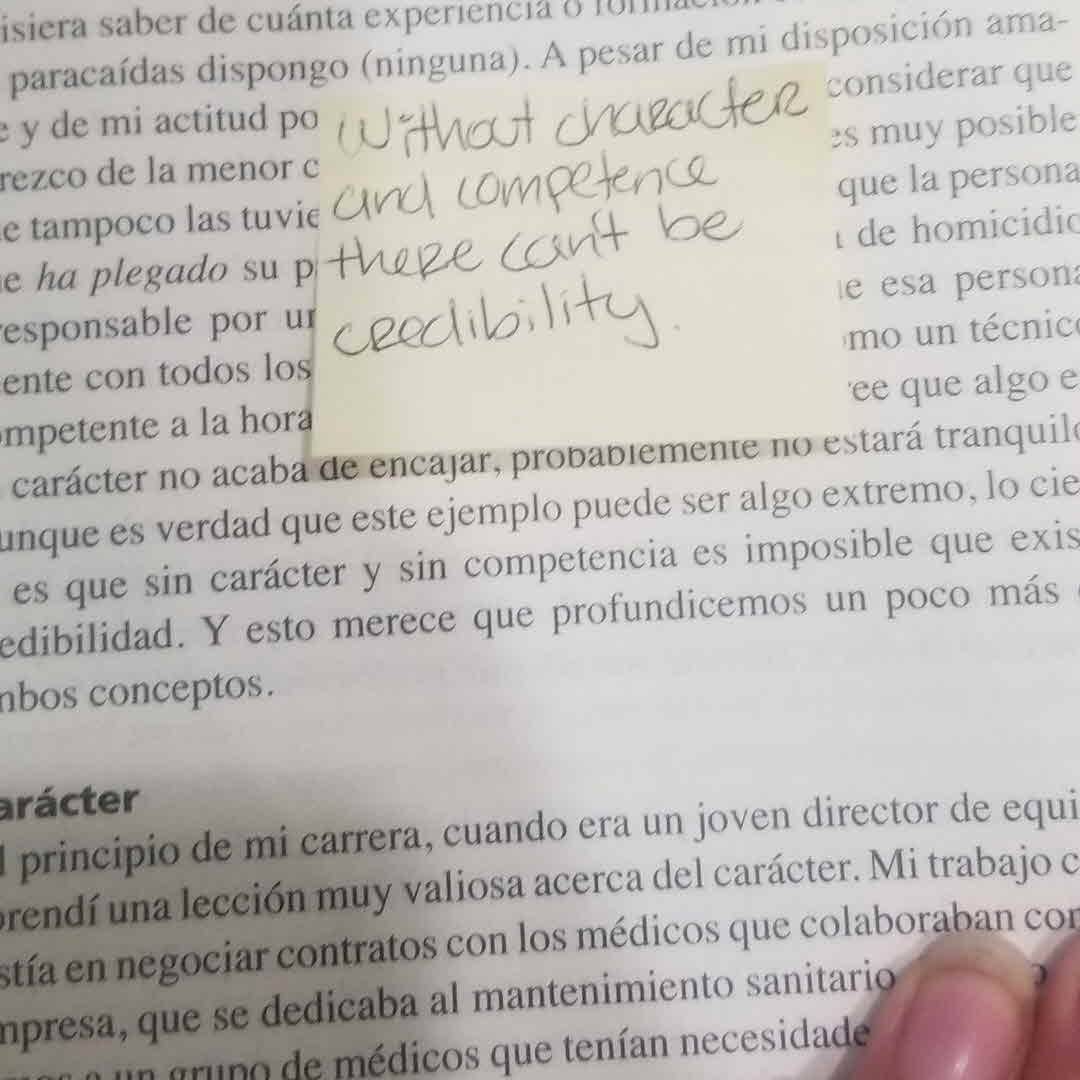 isiera saber de cuánta experiencia o
paracaídas dispongo (ninguna). A pesar de mi disposición ama-
e y de mi actitud po considerar que
rezco de la menor c es muy posible
e tampoco las tuvie que la persona
e ha plegado su p de homicidio
responsable por un e esa persona
ente con todos los mo un técnico
ompetente a la hora ree que algo e
Without character
and competence
there can't be
credibility.
carácter no acaba de encajar, probablemente no estará tranquilo
unque es verdad que este ejemplo puede ser algo extremo, lo cie
es que sin carácter y sin competencia es imposible que exis
edibilidad. Y esto merece que profundicemos un poco más
mbos conceptos.
arácter
l principio de mi carrera, cuando era un joven director de equi
prendí una lección muy valiosa acerca del carácter. Mi trabajo c
stía en negociar contratos con los médicos que colaboraban con
mpresa, que se dedicaba al mantenimiento sanitario
a un grupo de médicos que tenían necesidade